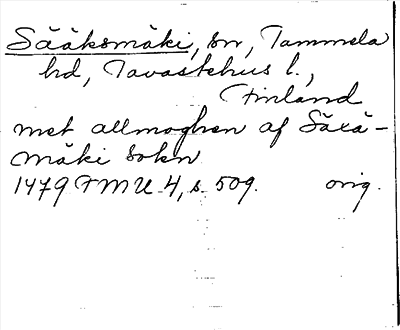 Sääksmäki, sn, Tammela
hd, Tavastehus l.,
Finland
met allmoghen af Säxä-
mäki sokn
1479 FMU 4, s. 509. orig.